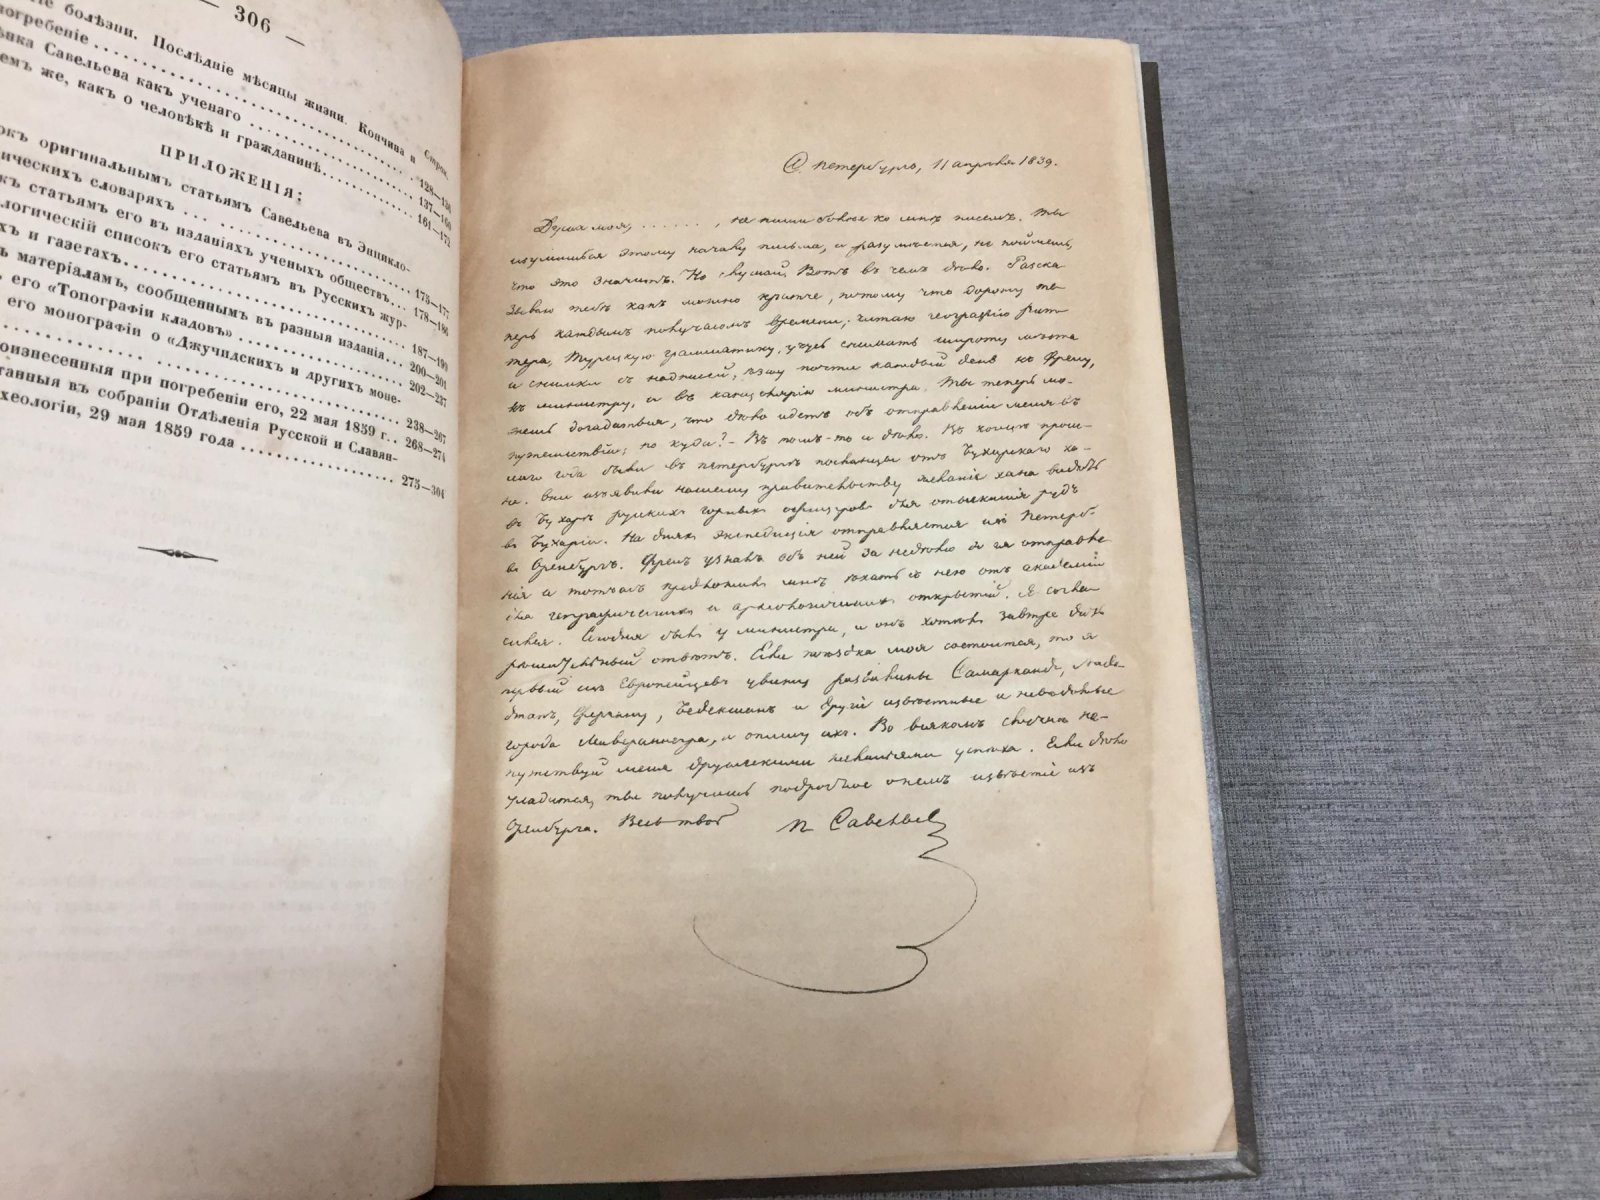 — 306 —
болѣзни. Послѣдніе мѣсяцы жизни. Кончина и
погребеніе
Стран.
128—136
Савельева какъ ученаго
137—160
же, какъ о человѣкѣ и гражданинѣ.
161—172
ПРИЛОЖЕНІЯ:
оригинальнымъ статьямъ Савельева въ Энцикло-
словаряхъ ...
175—177
статьямъ его въ изданіяхъ ученыхъ обществъ..
178—186
списокъ его статьямъ въ Русскихъ жур-
и газетахъ.
187—199
матеріаламъ, сообщеннымъ въ разныя изданія...
200—201
его «Топографіи кладовъ»
202—237
его монографіи о «Джучидскихъ и другихъ моне-
238—267
при погребеніи его, 22 мая 1859 г..
268—274
въ собраніи Отдѣленія Русской и Славян-
29 мая 1859 года
275—304
С. Петербургъ, 11 апрѣля 1839.
Душа моя, . . . . . . , не пиши болѣе ко мнѣ писемъ. Ты
изумишься этому началу письма, и разумѣется, не поймешь,
что это значитъ. Но слушай. Вотъ въ чемъ дѣло. Расска
зываю тебѣ какъ можно кратче, потому что дорожу те
перь каждымъ получасомъ времени; читаю географію Рит-
тера, Турецкую грамматику, учусь снимать широту мѣста
и снимки съ надписей, ѣзжу почти каждый день къ Френу,
къ министру, и въ канцелярію министра. Ты теперь мо-
жешь догадаться, что дѣло идетъ объ отправленіи меня въ
путешествіе; но куда? — Въ томъ-то и дѣло. Въ концѣ прош-
лаго года были въ Петербургѣ посланцы отъ Бухарскаго ха-
на. Они изъявили нашему правительству желаніе хана видѣть
въ Бухарѣ русскихъ горныхъ офицеровъ для отысканія рудъ
въ Бухаріи. На дняхъ экспедиція отправляется изъ Петерб.
въ Оренбургъ. Френъ узналъ объ ней за недѣлю до ея отправле
нія и тотчасъ предложилъ мнѣ ѣхать съ нею отъ академіи
для географическихъ и археологическихъ открытій. Я согла-
сился. Сегодня былъ у министра, и онъ хотѣлъ завтра дать
рѣшительный отвѣтъ. Если поѣздка моя состоится, то я
первый изъ Европейцевъ увижу развалины Самарканда,
Фергану, Бедекшанъ и другіе извѣстные и невѣдомые
города Мавераннегра, и опишу ихъ. Во всякомъ случаѣ на-
путствуй меня дружескими желаніями успѣха. Если дѣло
уладится, ты получишь подробное о немъ извѣстіе изъ
Оренбурга. Весь твой П Савельевъ